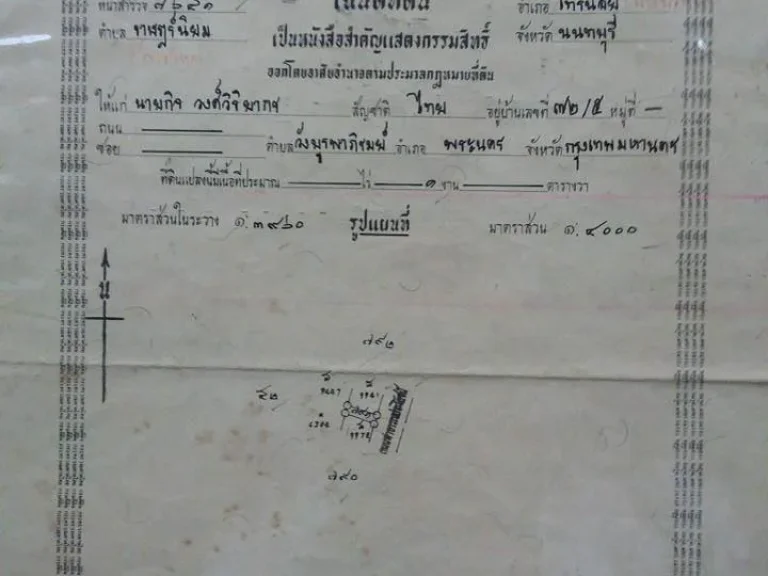 หน้าสำรวจ ๗๖๔๑ โฉนดที่ดิน อำเภอ ไทรน้อย
ตำบล ราษฎร์นิยม เป็นหนังสือสำคัญแสดงกรรมสิทธิ์ จังหวัด นนทบุรี
ออกโดยอาศัยอำนาจตามประมวลกฎหมายที่ดิน
ให้แก่ นายกิจ วงศ์วิริยากร สัญชาติ ไทย อยู่บ้านเลขที่ ๗๒/๕ หมู่ที่ —
ถนน
ซอย ตำบล วังบูรพาภิรมย์ อำเภอ พระนคร จังหวัด กรุงเทพมหานคร
ที่ดินแปลงนี้มีเนื้อที่ประมาณ ไร่ ๑ งาน ตารางวา
มาตราส่วนในระวาง ๑:๓๙๖๐ รูปแผนที่ มาตราส่วน ๑:๔๐๐๐
น
๗๙๒
๗๙๑
๗๙๐